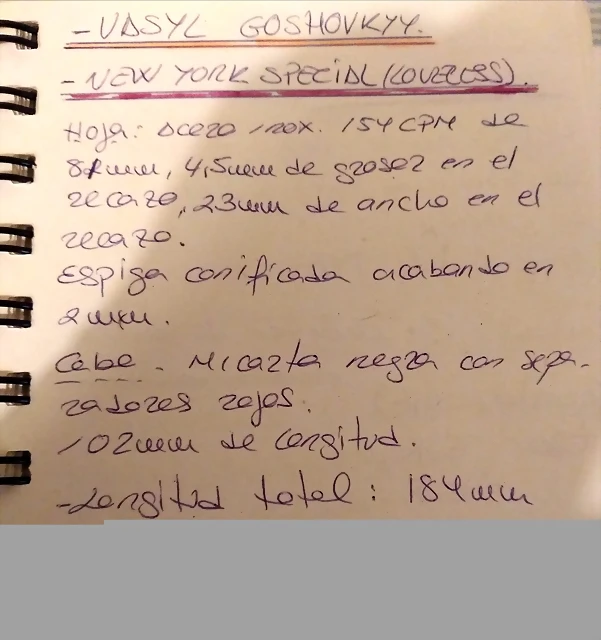 - VASYL GOSHOVKYY.
- NEW YORK SPECIAL (LOVELESS).
Hoja: Acero inox. 154 CPM de
82mm, 4,5mm de grosor en el
recazo, 23mm de ancho en el
recazo.
Espiga conificada acabando en
2mm.
Cabo. Micarta negra con sepa-
radores rojos.
102mm de longitud.
- Longitud total: 184mm